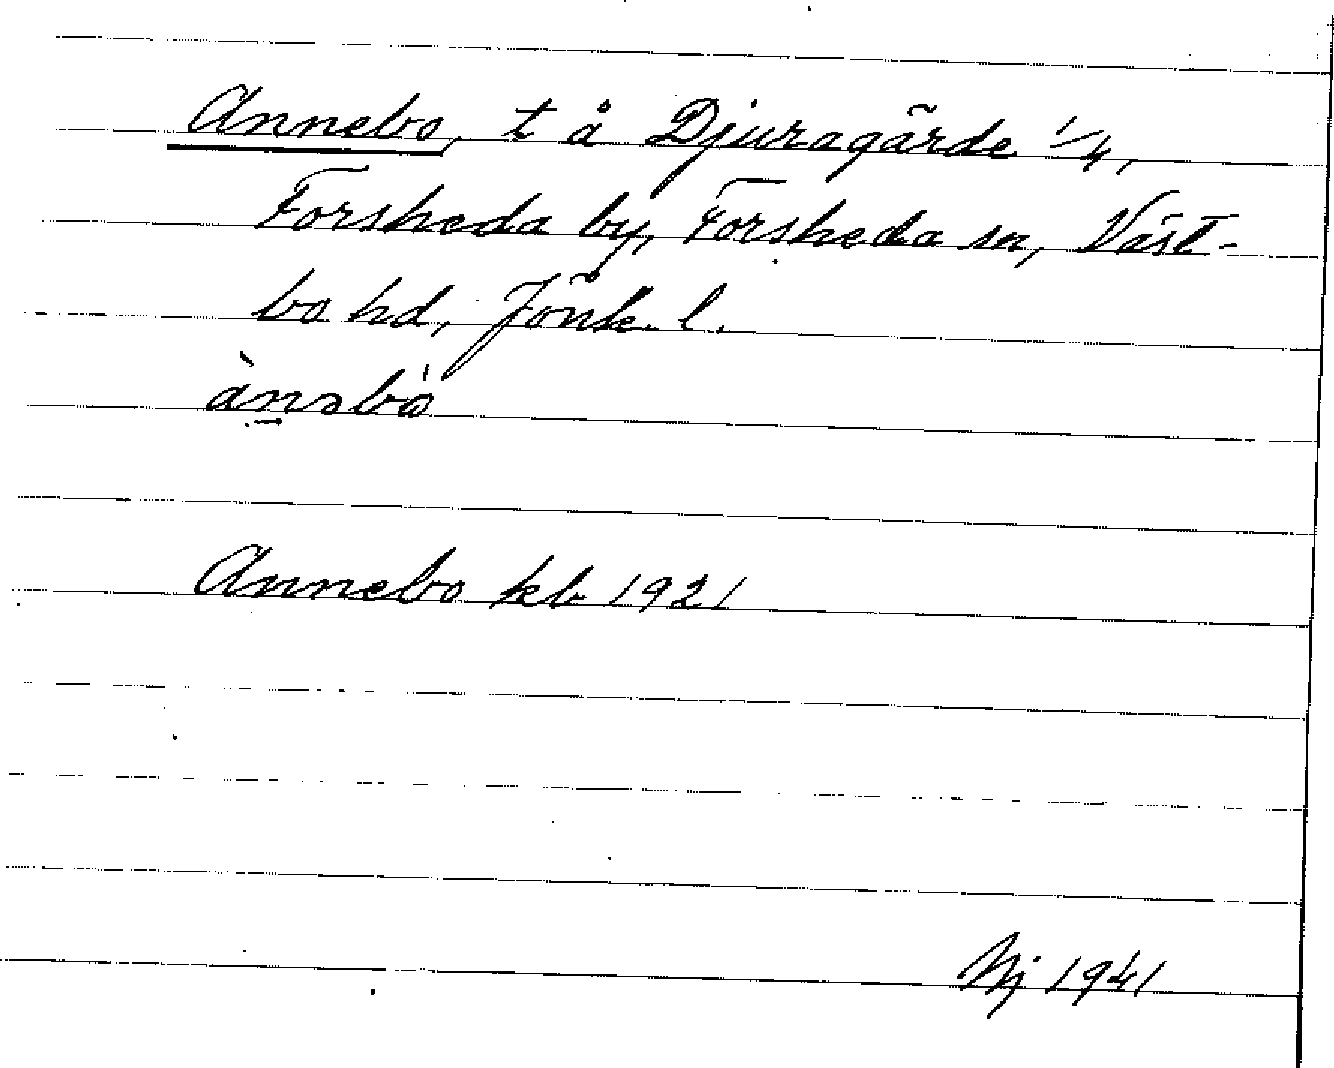 Annebo, t å Djuragärde 1/4,
Forsheda by, Forsheda sn, Väst-
bo hd, Jönk. l.
ànəbò
Annebo kb 1921
Nj 1941